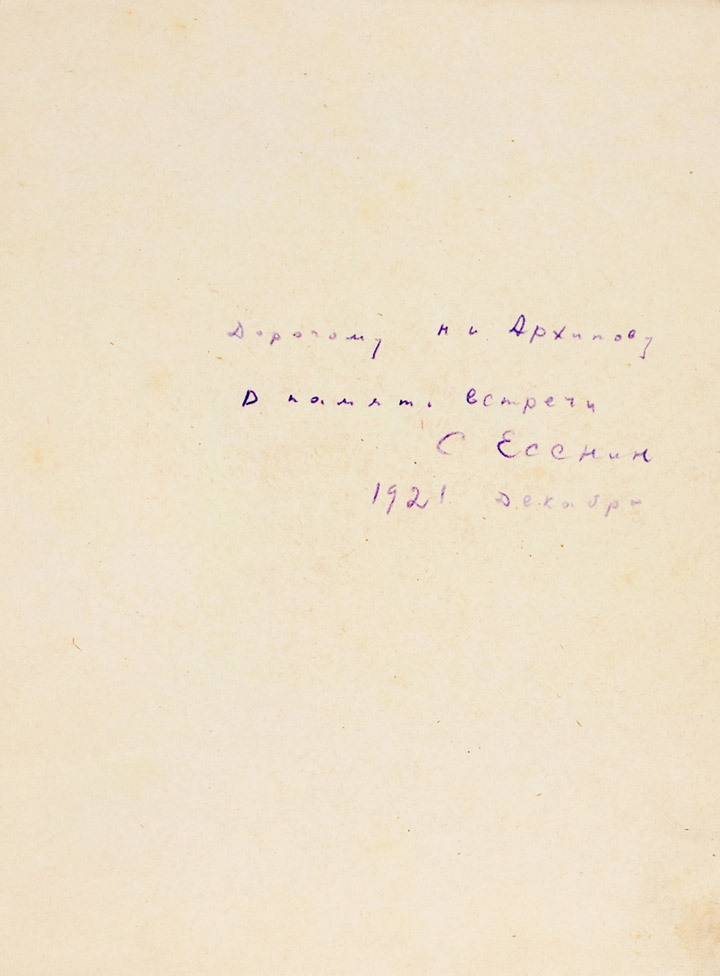 Дорогому Ни Архипову
В память встречи
С Есенин
1921 Декабрь